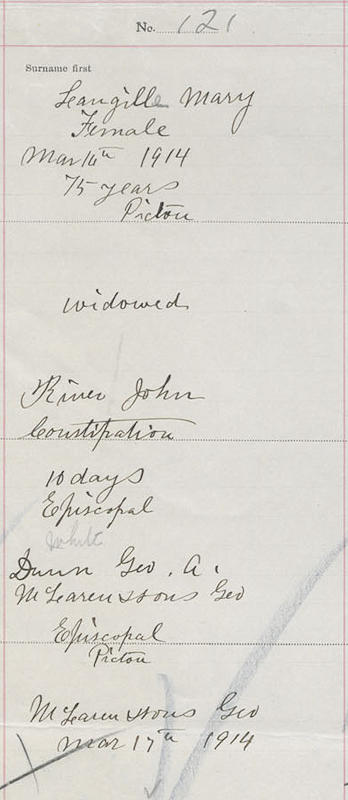 No. 121
Surname first
Langille Mary
Female
Mar 14th 1914
75 years
Pictou
widowed
River John
Constipation
10 days
Episcopal
White
Dunn Geo. A.
McLaren & Sons Geo
Episcopal
Pictou
McLaren & Sons Geo
Mar 17th 1914